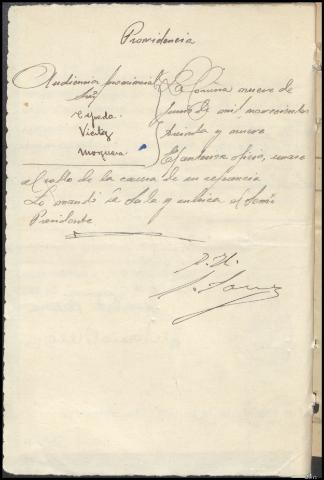 Providencia
Audiencia provincial
Srs
Cepeda.
Vicitez
Mosquera.
La Coruña nueve de
Junio de mil novecientos
treinta y nueve
El anterior oficio, unase
al rollo de la causa de su referencia
Lo mandó la Sala y rubrica el Señor
Presidente